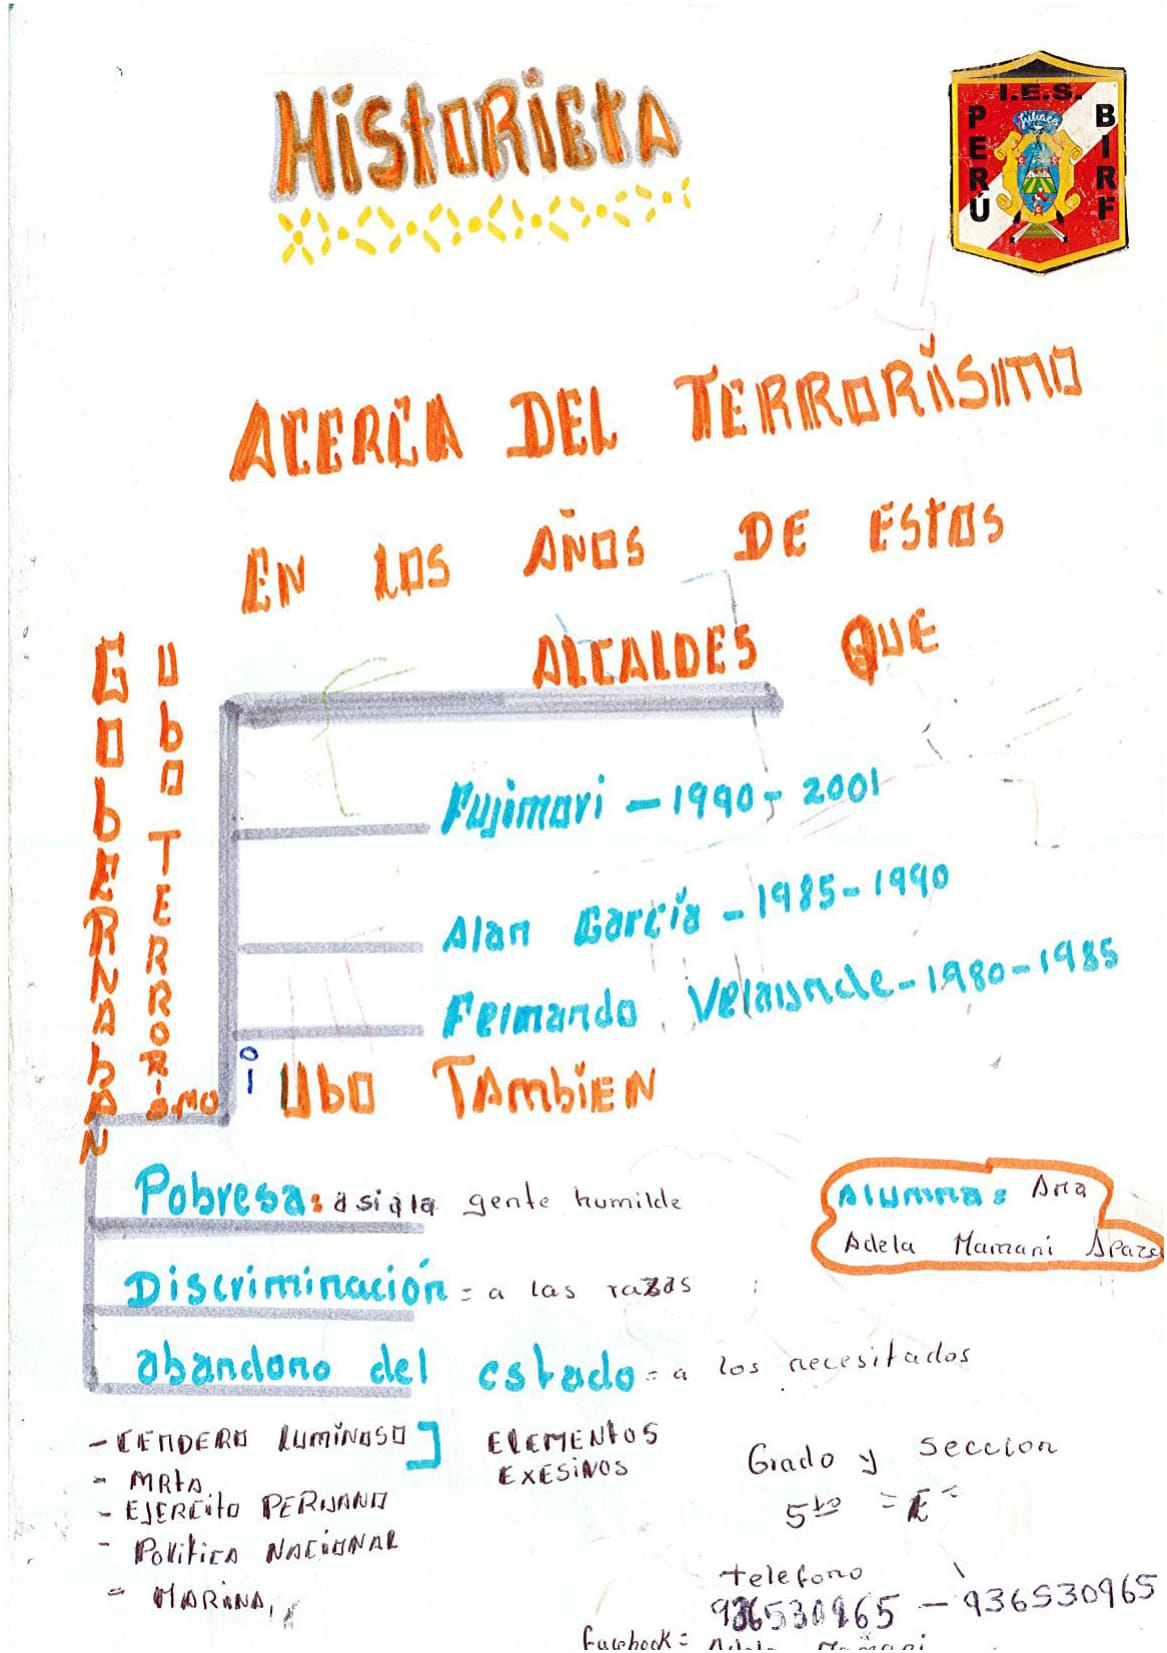 HistORiEtA
I.E.S.
PERÚ
BIRF
Juliaca
ACERCA DEL TERRORISMO
EN LOS AÑOS DE ESTOS
ALCALDES QUE
GObERNAbAN
UbO TERRORISMO
Fujimori - 1990 - 2001
Alan García - 1985-1990
Fernando Velaunde - 1980-1985
i UbO TAmbiEN
Pobresa: asia la gente humilde
Discriminación = a las razas
abandono del estado = a los necesitados
Alumna: Ana
Adela Mamani Apaza
- CENDERO LUMINOSO ] ELEMENtOS
EXESINOS
- MRtA
- EJERCito PERUANO
- Politica NACIONAL
= MARINA,
Grado y seccion
5to = E
telefono
936530965 - 936530965
facebook = Adela Mamani